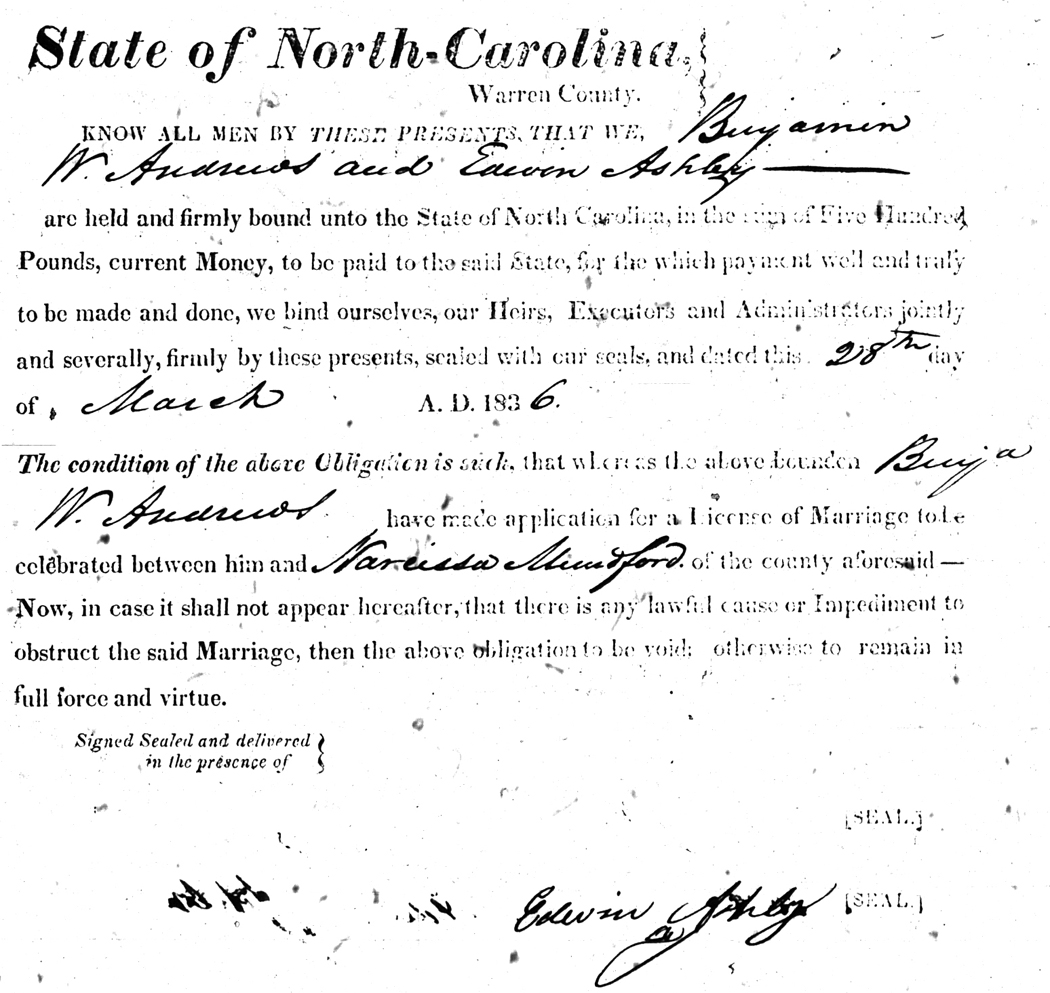 State of North-Carolina,
Warren County.
KNOW ALL MEN BY THESE PRESENTS, THAT WE, Benjamin
W. Andrews and Edwin Ashby
are held and firmly bound unto the State of North Carolina, in the sum of Five Hundred
Pounds, current Money, to be paid to the said State, for the which payment well and truly
to be made and done, we bind ourselves, our Heirs, Executors and Administrators jointly
and severally, firmly by these presents, sealed with our seals, and dated this 28th day
of March A. D. 1836.
The condition of the above Obligation is such, that whereas the above bounden Benja
W. Andrews have made application for a License of Marriage to be
celebrated between him and Narcissa Mundford. of the county aforesaid —
Now, in case it shall not appear hereafter, that there is any lawful cause or Impediment to
obstruct the said Marriage, then the above obligation to be void; otherwise to remain in
full force and virtue.
Signed Sealed and delivered
in the presence of
[SEAL.]
Edwin Ashby [SEAL.]